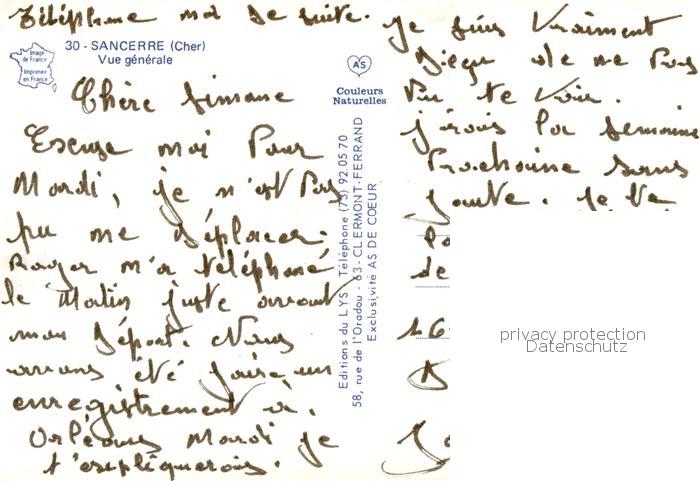 Téléphone moi de suite.
30 - SANCERRE (Cher)
Vue générale
Image de France
Imprimé en France
Chère Simone
Escuse moi Pour
Mardi, je n'est Pas
pu me déplacer.
Roger m'a téléphoné
le Matin juste avant
mon Départ. Nous
avons été faire un
enregistrement à
Orléans Mardi je
t'espliquerais.
AS
Couleurs
Naturelles
Editions du LYS - Téléphone (73) 92 05 70
58, rue de l'Oradou - 63-CLERMONT-FERRAND
Exclusivité AS DE COEUR
je suis Vraiment
de ne Pas
Pu te Voir.
j'irais la semaine
Prochaine sans
faute. je te
de
privacy protection
Datenschutz